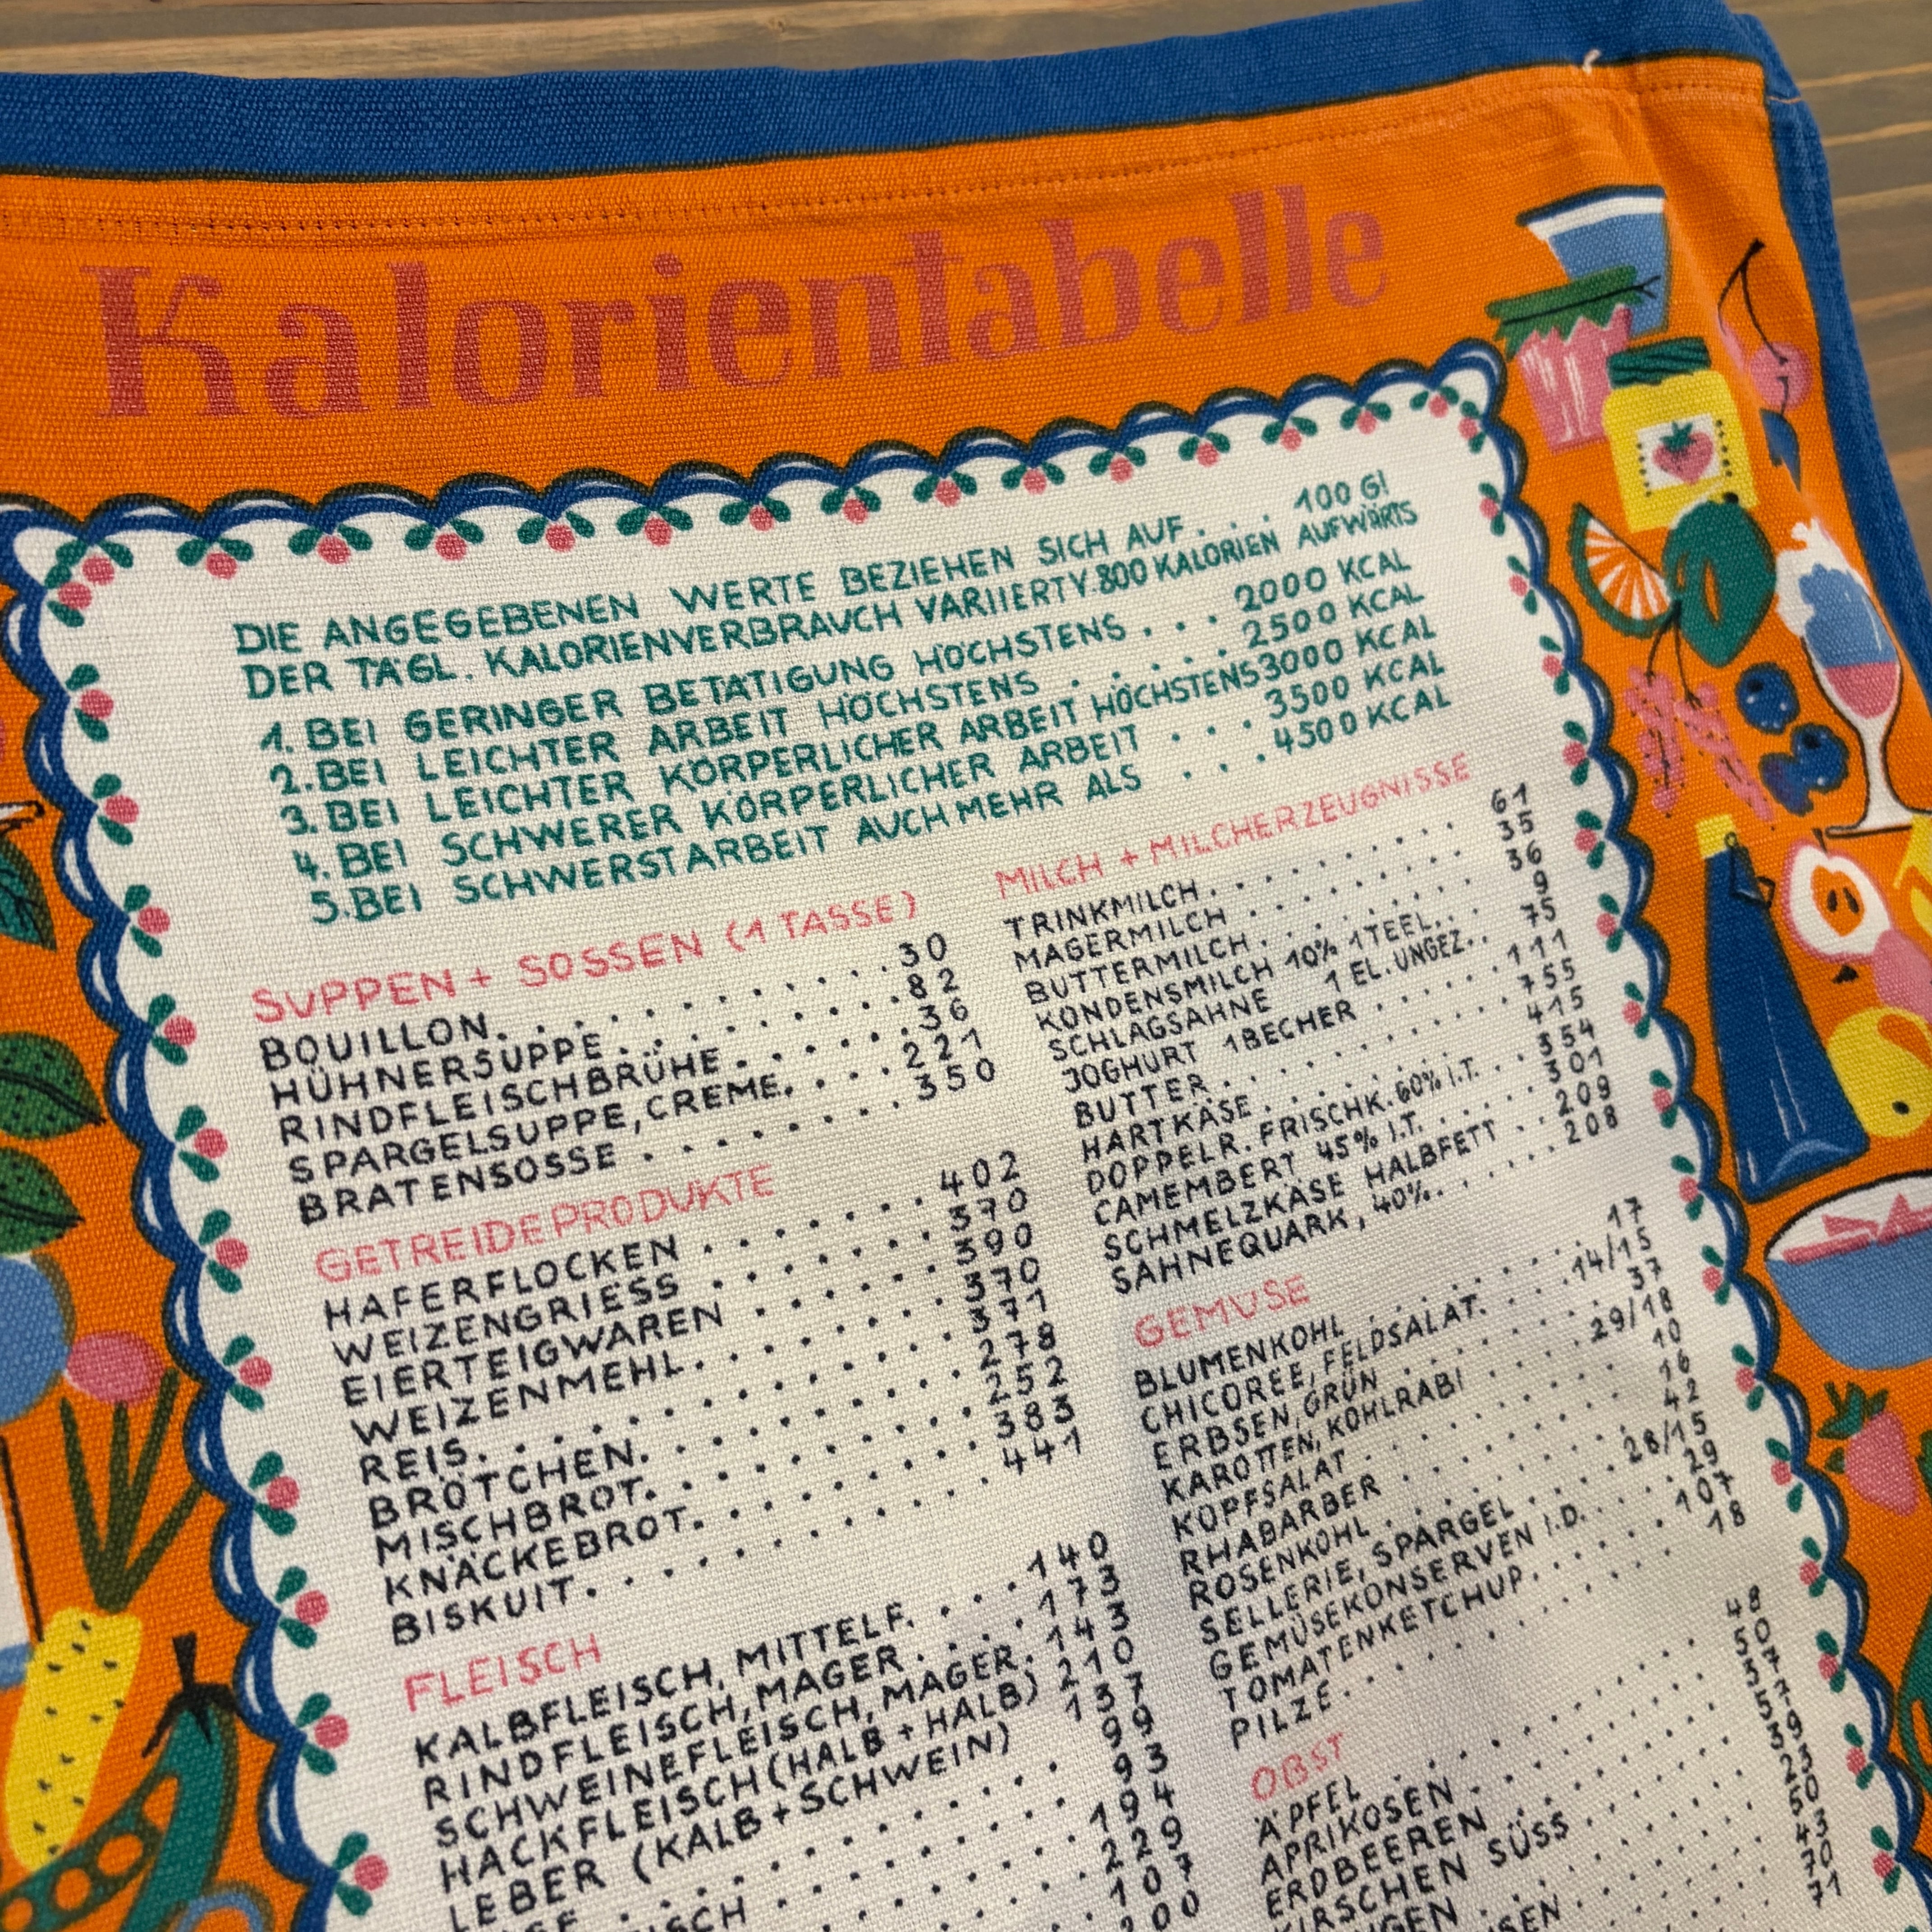 Kalorientabelle
DIE ANGEGEBENEN WERTE BEZIEHEN SICH AUF . . . 100 G!
DER TÄGL. KALORIENVERBRAUCH VARIIERT V. 800 KALORIEN AUFWÄRTS
1. BEI GERINGER BETÄTIGUNG HÖCHSTENS . . . 2000 KCAL
2. BEI LEICHTER ARBEIT HÖCHSTENS . . . . . . 2500 KCAL
3. BEI LEICHTER KÖRPERLICHER ARBEIT HÖCHSTENS 3000 KCAL
4. BEI SCHWERER KÖRPERLICHER ARBEIT . . . 3500 KCAL
5. BEI SCHWERSTARBEIT AUCH MEHR ALS . . . 4500 KCAL
SUPPEN + SOSSEN (1 TASSE)
BOUILLON. . . . . . . . . . . 30
HÜHNERSUPPE. . . . . . . . 82
RINDFLEISCHBRÜHE . . . . . . 36
SPARGELSUPPE, CREME. . . . 221
BRATENSOSSE . . . . . . . . 350
GETREIDEPRODUKTE
HAFERFLOCKEN . . . . . . . 402
WEIZENGRIESS . . . . . . . 370
EIERTEIGWAREN . . . . . . 390
WEIZENMEHL. . . . . . . . 370
REIS. . . . . . . . . . . . 371
BRÖTCHEN. . . . . . . . . 278
MISCHBROT. . . . . . . . . 252
KNÄCKEBROT. . . . . . . . 383
BISKUIT. . . . . . . . . . . 441
FLEISCH
KALBFLEISCH, MITTELF. . . . 140
RINDFLEISCH, MAGER. . . . 173
SCHWEINEFLEISCH, MAGER. 143
HACKFLEISCH (HALB + HALB) 210
LEBER (KALB + SCHWEIN) 137
99
93
194
229
107
200
MILCH + MILCHERZEUGNISSE
TRINKMILCH. . . . . . . . . 61
MAGERMILCH . . . . . . . . 35
BUTTERMILCH. . . . . . . . 36
KONDENSMILCH 10% 1 TEEL. . . 9
SCHLAGSAHNE 1 EL. UNGEZ. . . 75
JOGHURT 1 BECHER . . . . . . 111
BUTTER. . . . . . . . . . . 755
HARTKÄSE. . . . . . . . . . 415
DOPPELR. FRISCHK. 60% I.T. . . 354
CAMEMBERT 45% I.T. . . . . . 301
SCHMELZKÄSE HALBFETT . . 209
SAHNEQUARK, 40%. . . . . . 208
GEMÜSE
BLUMENKOHL . . . . . . . . 17
CHICOREE, FELDSALAT. . . . 14/15
ERBSEN, GRÜN . . . . . . . 37
KAROTTEN, KOHLRABI . . . . 29/18
KOPFSALAT . . . . . . . . . 10
RHABARBER . . . . . . . . . 16
ROSENKOHL . . . . . . . . . 42
SELLERIE, SPARGEL . . . . . 28/15
GEMÜSEKONSERVEN I.D. . . . 29
TOMATENKETCHUP. . . . . . 107
PILZE . . . . . . . . . . . . 18
OBST
ÄPFEL
APRIKOSEN
ERDBEEREN
KIRSCHEN SÜSS
71